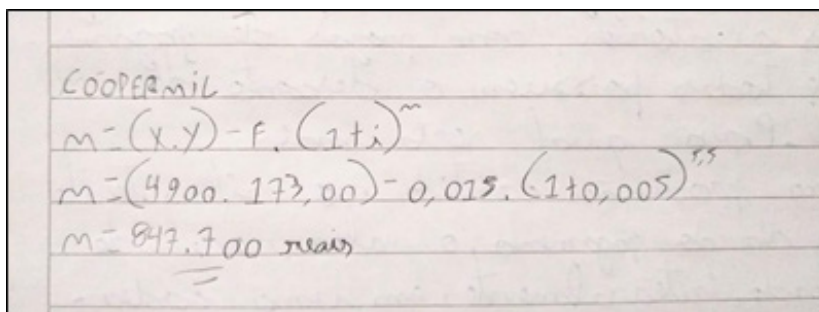 COOPERMIL
m = (x.y) - F. (1+i)^n
m = (4900. 173,00) - 0,015. (1+0,005)^5,5
m = 847.700 reais